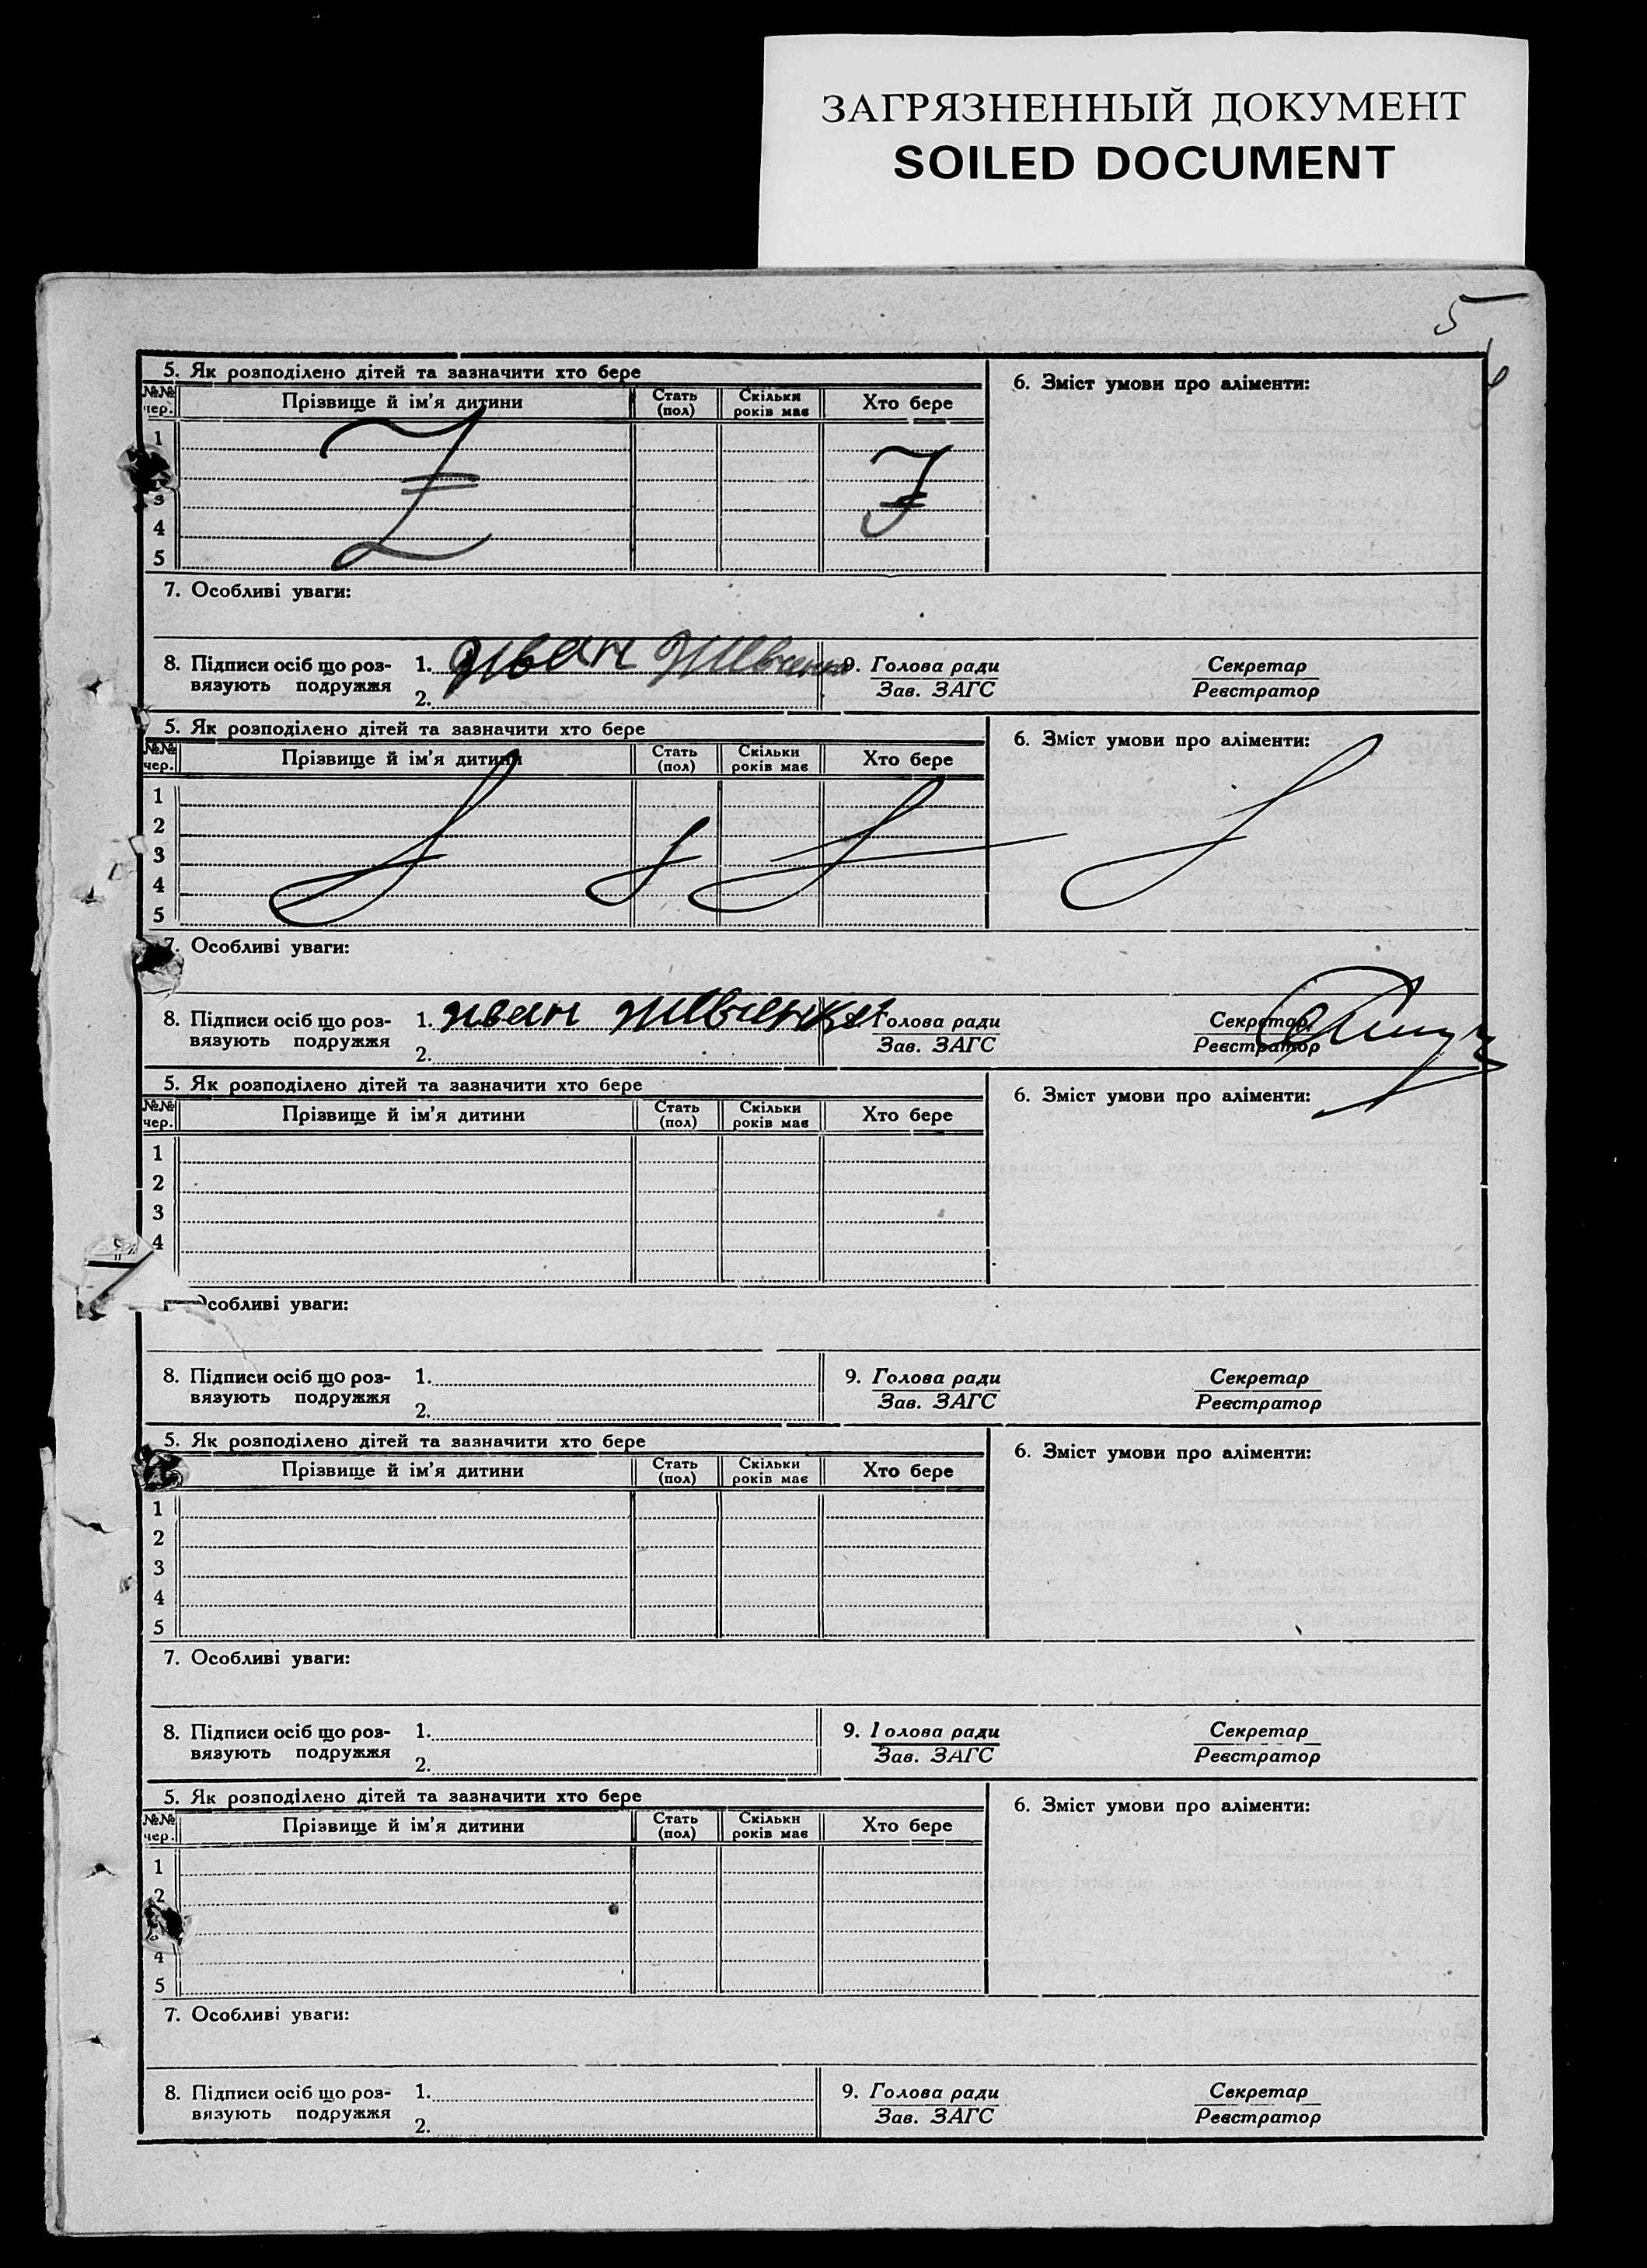 ЗАГРЯЗНЕННЫЙ ДОКУМЕНТ
SOILED DOCUMENT
5
5. Як розподілено дітей та зазначити хто бере
6. Зміст умови про аліменти:
№№ чер. Прізвище й ім'я дитини Стать (пол) Скільки років має Хто бере
1
3
4
5
7. Особливі уваги:
8. Підписи осіб що роз-
вязують подружжя
1. иван
2.
9. Голова ради
Зав. ЗАГС
Секретар
Реєстратор
5. Як розподілено дітей та зазначити хто бере
6. Зміст умови про аліменти:
№№ чер. Прізвище й ім'я дитини Стать (пол) Скільки років має Хто бере
1
2
3
4
5
7. Особливі уваги:
8. Підписи осіб що роз-
вязують подружжя
1. иван
2.
Голова ради
Зав. ЗАГС
Секретар
Реєстратор
5. Як розподілено дітей та зазначити хто бере
6. Зміст умови про аліменти:
№№ чер. Прізвище й ім'я дитини Стать (пол) Скільки років має Хто бере
1
2
3
4
Особливі уваги:
8. Підписи осіб що роз-
вязують подружжя
1.
2.
9. Голова ради
Зав. ЗАГС
Секретар
Реєстратор
5. Як розподілено дітей та зазначити хто бере
6. Зміст умови про аліменти:
Прізвище й ім'я дитини Стать (пол) Скільки років має Хто бере
1
2
3
4
5
7. Особливі уваги:
8. Підписи осіб що роз-
вязують подружжя
1.
2.
9. Голова ради
Зав. ЗАГС
Секретар
Реєстратор
5. Як розподілено дітей та зазначити хто бере
6. Зміст умови про аліменти:
№№ чер. Прізвище й ім'я дитини Стать (пол) Скільки років має Хто бере
1
2
4
5
7. Особливі уваги:
8. Підписи осіб що роз-
вязують подружжя
1.
2.
9. Голова ради
Зав. ЗАГС
Секретар
Реєстратор